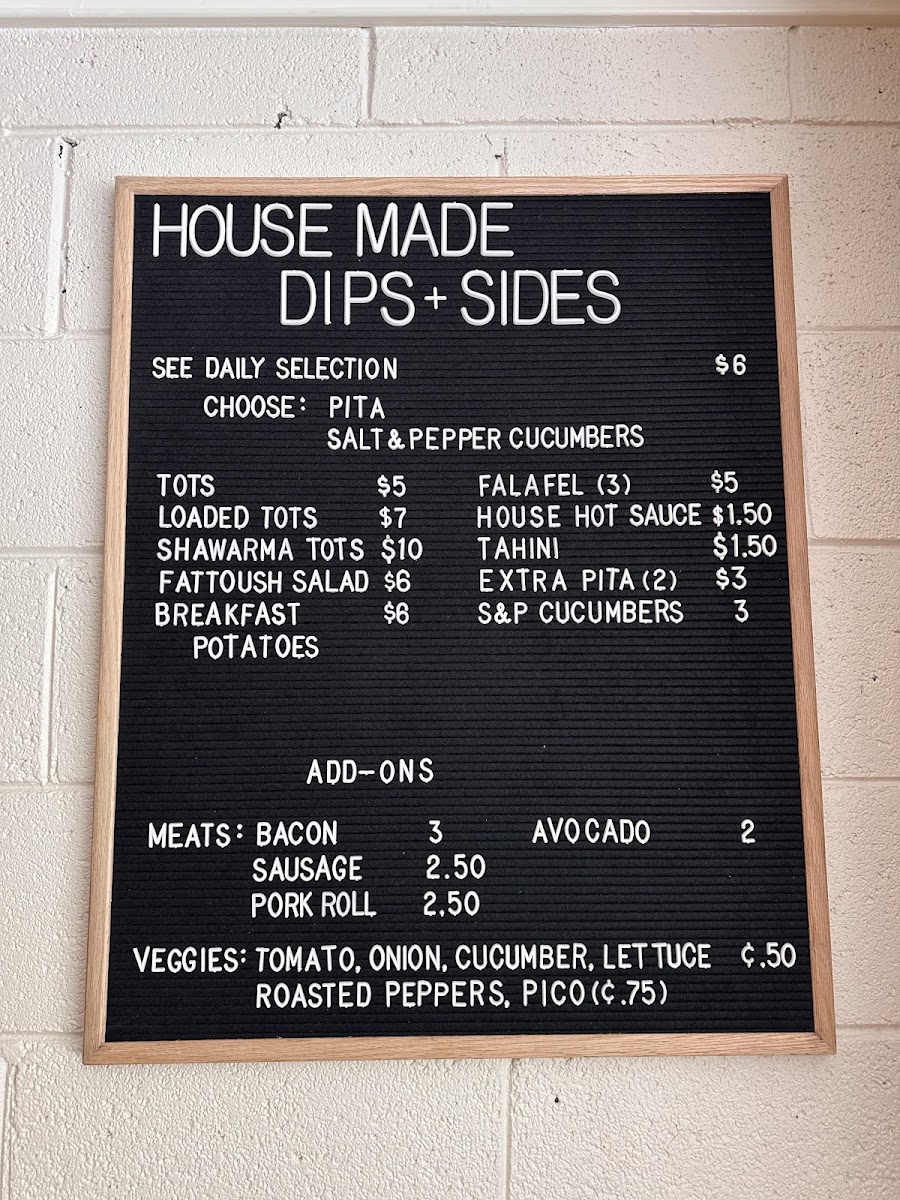 HOUSE MADE
DIPS + SIDES
SEE DAILY SELECTION $6
CHOOSE: PITA
SALT & PEPPER CUCUMBERS
TOTS $5 FALAFEL (3) $5
LOADED TOTS $7 HOUSE HOT SAUCE $1.50
SHAWARMA TOTS $10 TAHINI $1.50
FATTOUSH SALAD $6 EXTRA PITA (2) $3
BREAKFAST $6 S&P CUCUMBERS 3
POTATOES
ADD-ONS
MEATS: BACON 3 AVOCADO 2
SAUSAGE 2.50
PORK ROLL 2.50
VEGGIES: TOMATO, ONION, CUCUMBER, LETTUCE ¢.50
ROASTED PEPPERS, PICO (¢.75)